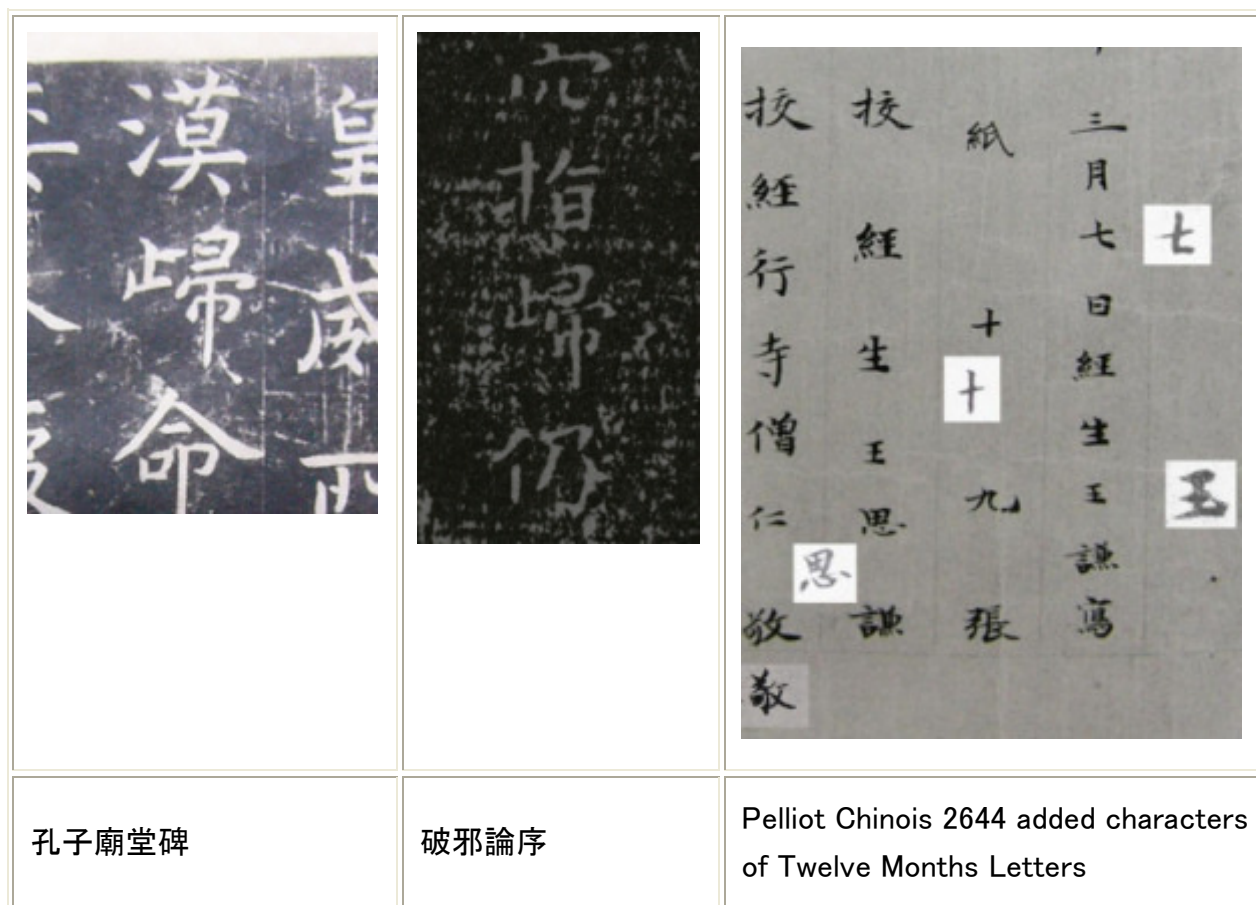 皇威
漠歸命
指歸
七
王
三月七日經生王謙寫
紙十九張
十
挍經生王思謙
思
挍經行寺僧仁敬
敬
孔子廟堂碑
破邪論序
Pelliot Chinois 2644 added characters
of Twelve Months Letters